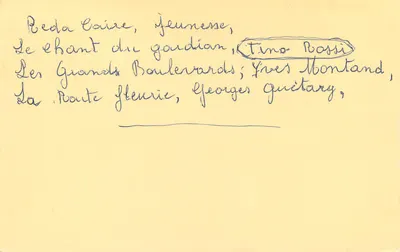 Reda Caire, Jeunesse,
Le Chant du gardian, Tino Rossi
Les Grands Boulevards; Yves Montand,
La Route fleurie, Georges Guétary,